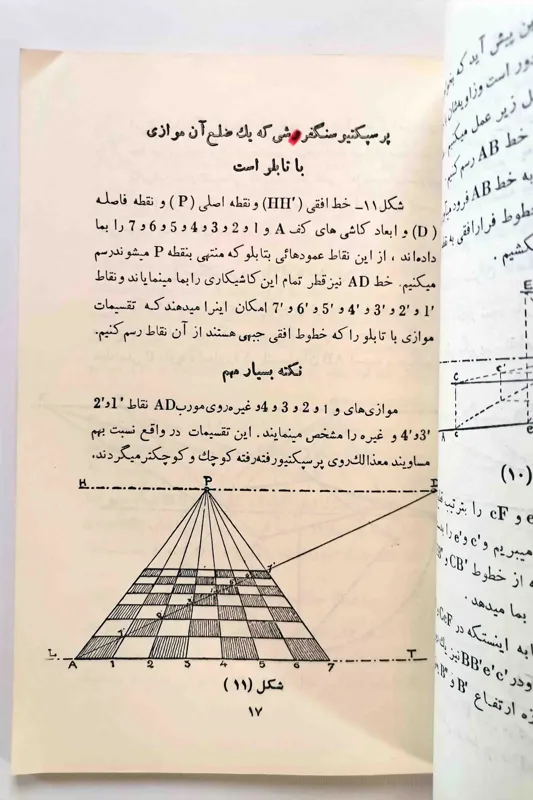 پرسپکتیو سنگفرشی که یك ضلع آن موازی
با تابلو است
شکل ۱۱ـ خط افقی (HH′) و نقطه اصلی (P) و نقطه فاصله
(D) و ابعاد کاشی های کف A و 1 و 2 و 3 و 4 و 5 و 6 و 7 را بما
داده‌اند ، از این نقاط عمودهائی بتابلو که منتهی بنقطه P میشوند رسم
میکنیم. خط AD نیز قطر تمام این کاشیکاری را بما مینمایاند و نقاط
1′ و 2′ و 3′ و 4′ و 5′ و 6′ و 7′ امکان اینرا میدهند که تقسیمات
موازی با تابلو را که خطوط افقی جبهی هستند از آن نقاط رسم کنیم.
نکته بسیار مهم
موازی‌های و 1 و 2 و 3 و 4 و غیره روی مورب AD نقاط 1′ و 2′
3′ و 4′ و غیره را مشخص مینمایند. این تقسیمات در واقع نسبت بهم
مساویند معذالك روی پرسپکتیو رفته رفته کوچك و کوچکتر میگردند.
H P D
L A 1 2 3 4 5 6 7 T
شکل (۱۱)
۱۷
پیش آید که
دور است و زاویه‌شان
زیر عمل میکنیم
خط AB رسم کنیم
به خط AB فرود
خطوط فرار افقی به
میکشیم .
E
c c
A c e
(۱۰)
e و cF را بترتیب
میبریم و c′ و e′ را
از خطوط CB′ و
بما میدهد .
به اینستکه در
و در BB′e′c′ نیز یك
ارتفاع B′ و B″